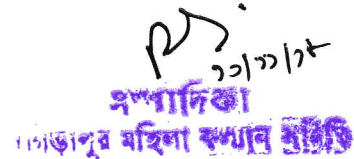 ১১/১১/১৮
সম্পাদিকা
মহিলা কল্যান সমিতি